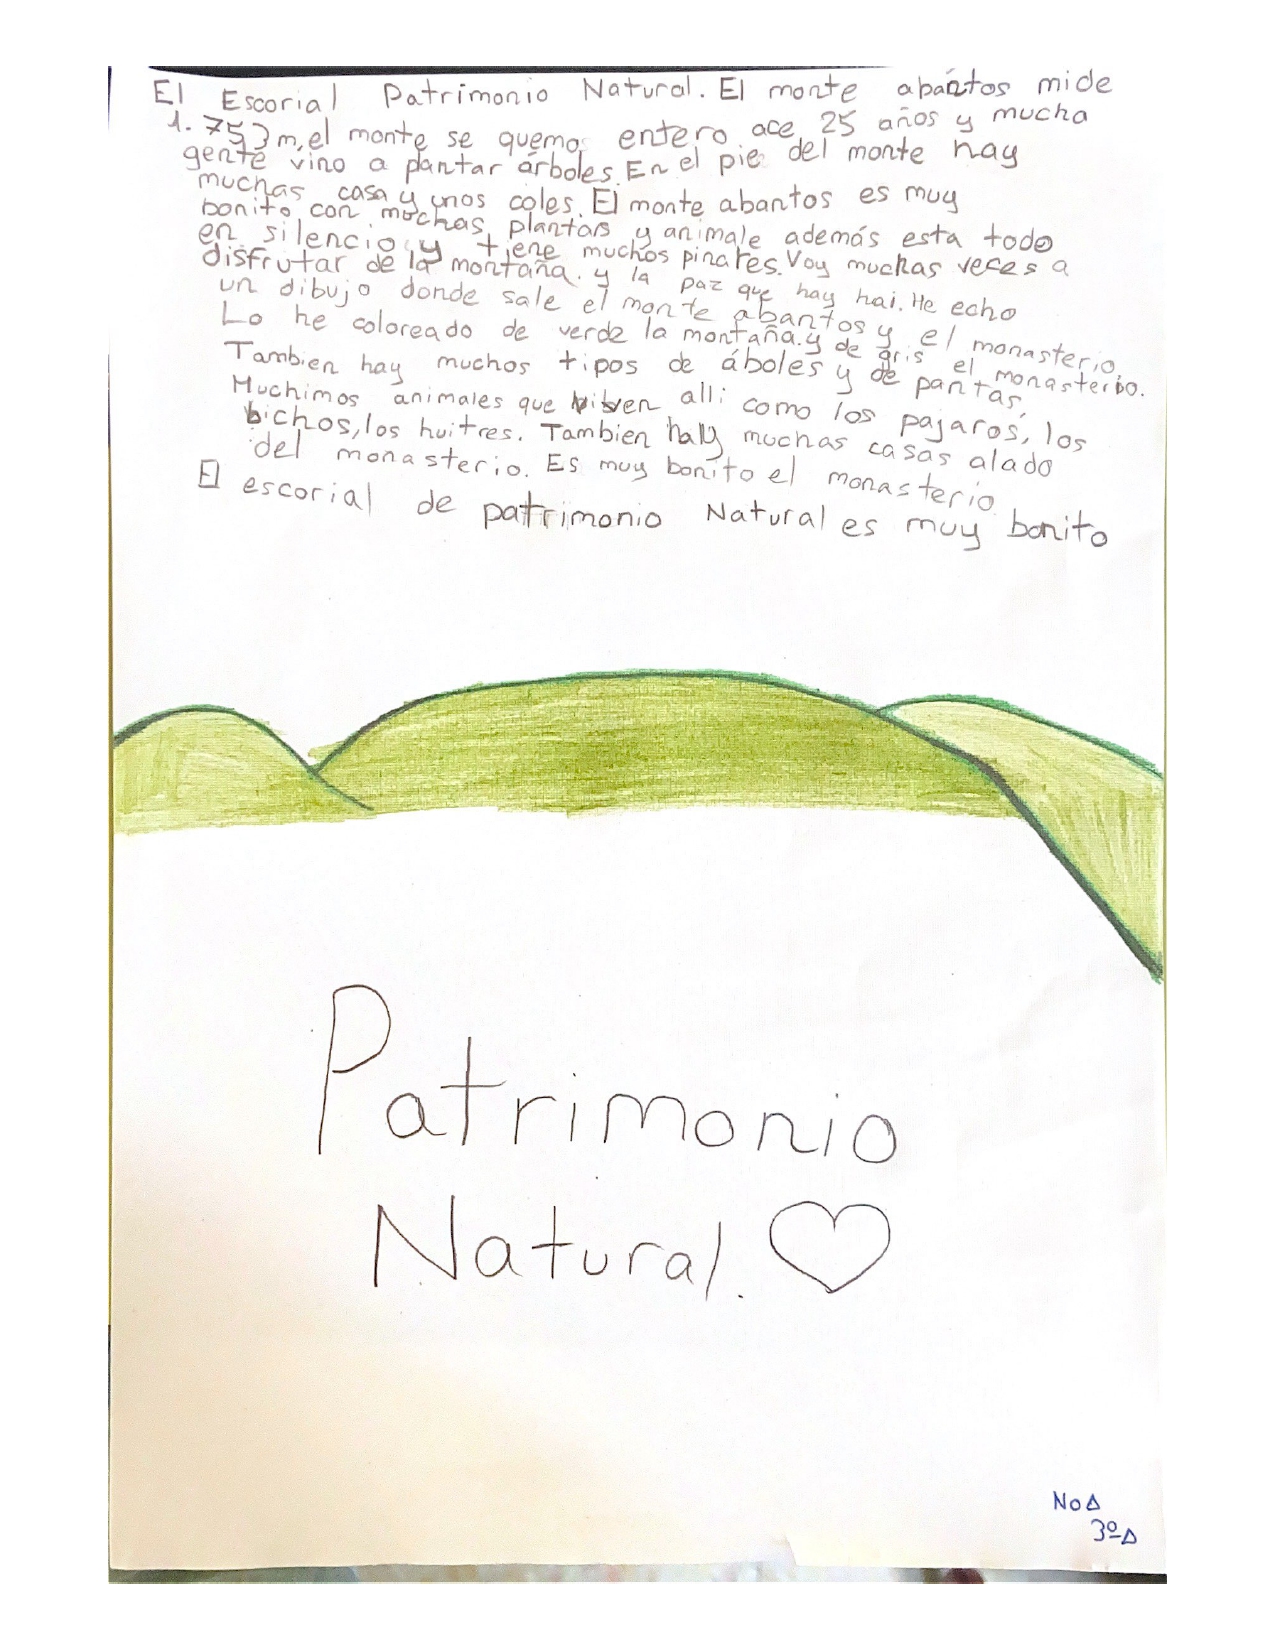 El Escorial Patrimonio Natural. El monte abantos mide
1.753 m, el monte se quemo entero ace 25 años y mucha
gente vino a pantar árboles. En el pie del monte hay
muchas casa y unos coles. El monte abantos es muy
bonito con muchas plantas y animale además esta todo
en silencio y tiene muchos pinares. Voy muchas veces a
disfrutar de la montaña. y la paz que hay hai. He echo
un dibujo donde sale el monte abantos y el monasterio
Lo he coloreado de verde la montaña. y de gris el monasterio.
Tambien hay muchos tipos de áboles y de pantas,
Muchimos animales que viven alli como los pajaros, los
bichos, los huitres. Tambien hay muchas casas alado
del monasterio. Es muy bonito el monasterio
El escorial de patrimonio Natural es muy bonito
Patrimonio
Natural. ♡
NOA
3ºA